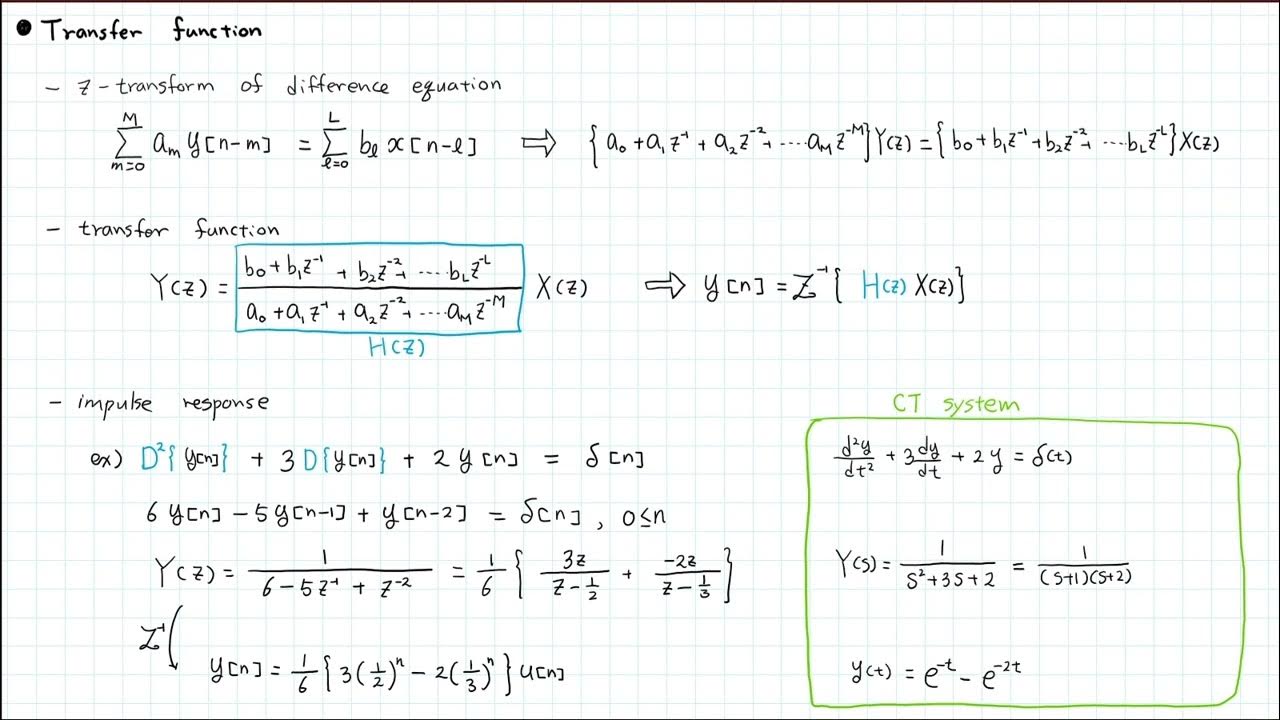 ● Transfer function
- z-transform of difference equation
\sum_{m=0}^{M} a_m y[n-m] = \sum_{ℓ=0}^{L} b_ℓ x[n-ℓ] ⇒ {a_0 + a_1 z^{-1} + a_2 z^{-2} + ····a_M z^{-M}} Y(z) = {b_0 + b_1 z^{-1} + b_2 z^{-2} + ····b_L z^{-L}} X(z)
- transfer function
Y(z) = \frac{b_0 + b_1 z^{-1} + b_2 z^{-2} + ····b_L z^{-L}}{a_0 + a_1 z^{-1} + a_2 z^{-2} + ····a_M z^{-M}} X(z) ⇒ y[n] = Z^{-1}{ H(z) X(z)}
H(z)
- impulse response
ex) D^2{y[n]} + 3 D{y[n]} + 2 y[n] = δ[n]
6 y[n] - 5 y[n-1] + y[n-2] = δ[n], 0≤n
Y(z) = \frac{1}{6 - 5z^{-1} + z^{-2}} = \frac{1}{6} { \frac{3z}{z - \frac{1}{2}} + \frac{-2z}{z - \frac{1}{3}} }
Z^{-1}
y[n] = \frac{1}{6} { 3(\frac{1}{2})^n - 2(\frac{1}{3})^n } u[n]
CT system
\frac{d^2y}{dt^2} + 3\frac{dy}{dt} + 2y = δ(t)
Y(s) = \frac{1}{s^2+3s+2} = \frac{1}{(s+1)(s+2)}
y(t) = e^{-t} - e^{-2t}